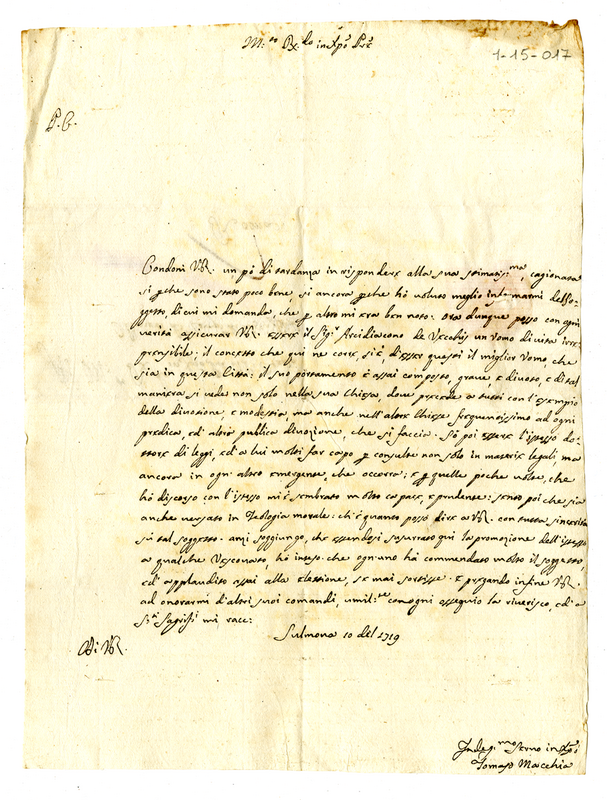 M.to R.do in Xpo Pre
1-15-017
P. C.
Condoni VR. un pò di tardanza in rispondere alla sua stimatis.ma, cagionata
si perche sono stato poco bene si ancora perche hò voluto meglio informarmi del So-
ggetto, di cui mi domanda, che per altro mi era ben noto. Ora dunque posso con ogni
verità assicurar VR. essere il Sig.r Arcidiacono de Vecchis un Vomo di vita irre
prensibile; il concetto che qui ne corre, si è, d'esser quasi il miglior Vomo, che
sia in questa Città: il suo portamento è assai composto, grave, e divoto, e di tal
maniera si vede non solo nella sua Chiesa, dove precede a tutti con l'esempio
della divozione, e modestia ma anche nell'altre Chiese frequentissimo ad ogni
predica, ed' altra publica divozione, che si faccia. Sò poi essere l'istesso do-
ttore di leggi, ed' a lui molti far capo per consulte non solo in materie legali, ma
ancora in ogni altra emergente, che occorra; e per quelle poche volte, che
hò discorso con l'istesso mi è sembrato molto capace, e prudente: sento poi che sia
anche versato in Teologia morale: ch'è quanto posso dire a VR. con tutta sincerità
sù tal soggetto. anzi soggiungo, che essendosi susurrato qui la promozione dell'istesso
a qualche Vescovato, hò inteso che ogn'uno hà commendato molto il soggetto,
ed' applaudito assai alla elezione, se mai sortisse. e pregando infine VR.
ad onorarmi d'altri suoi comandi, umil.te con ogni ossequio la riverisco, ed' a
S.i Sagrifi mi racc:
Sulmona 10 del 1719
Di VR.
Indeg.mo Servo in Xpo
Tomaso Macchia